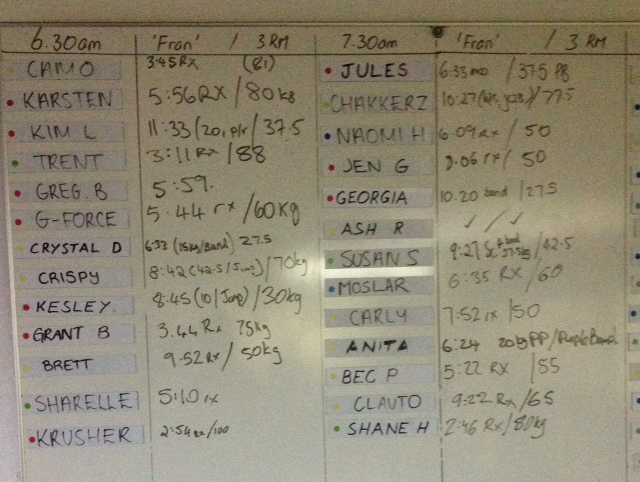 6.30am 'Fran' / 3 RM
CAMO 3:45 RX (81)
KARSTEN 5:56 RX / 80kg
KIM L 11:33 (20, plr / 37.5
TRENT 3:11 Rx / 88
GREG. B 5:59.
G-FORCE 5.44 rx / 60kg
CRYSTAL D 6:33 (15kg/Band) 27.5
CRISPY 8:42 (42.5/Jump) / 70kg
KESLEY 8:45 (10/Jump) / 30kg
GRANT B 3.44 Rx 75kg
BRETT 9.52 Rx / 50kg
SHARELLE 5:10 rx
KRUSHER 2:54 Rx / 100
7.30am 'Fran' / 3 RM
JULES 6:33 / 37.5 PB
CHAKKERZ 10:27 / 77.5
NAOMI H 6.09 Rx / 50
JEN G 8.06 rx / 50
GEORGIA 10.20 band / 27.5
ASH R ✓ / ✓
SUSAN S 9:27 / 42.5
MOSLAR 6:35 RX / 60
CARLY 7:52 rx / 50
ANITA 6:24 20kg PP / Purple Band
BEC P 5:22 RX / 55
CLAUTO 9:22 RX / 65
SHANE H 2:46 Rx / 80kg